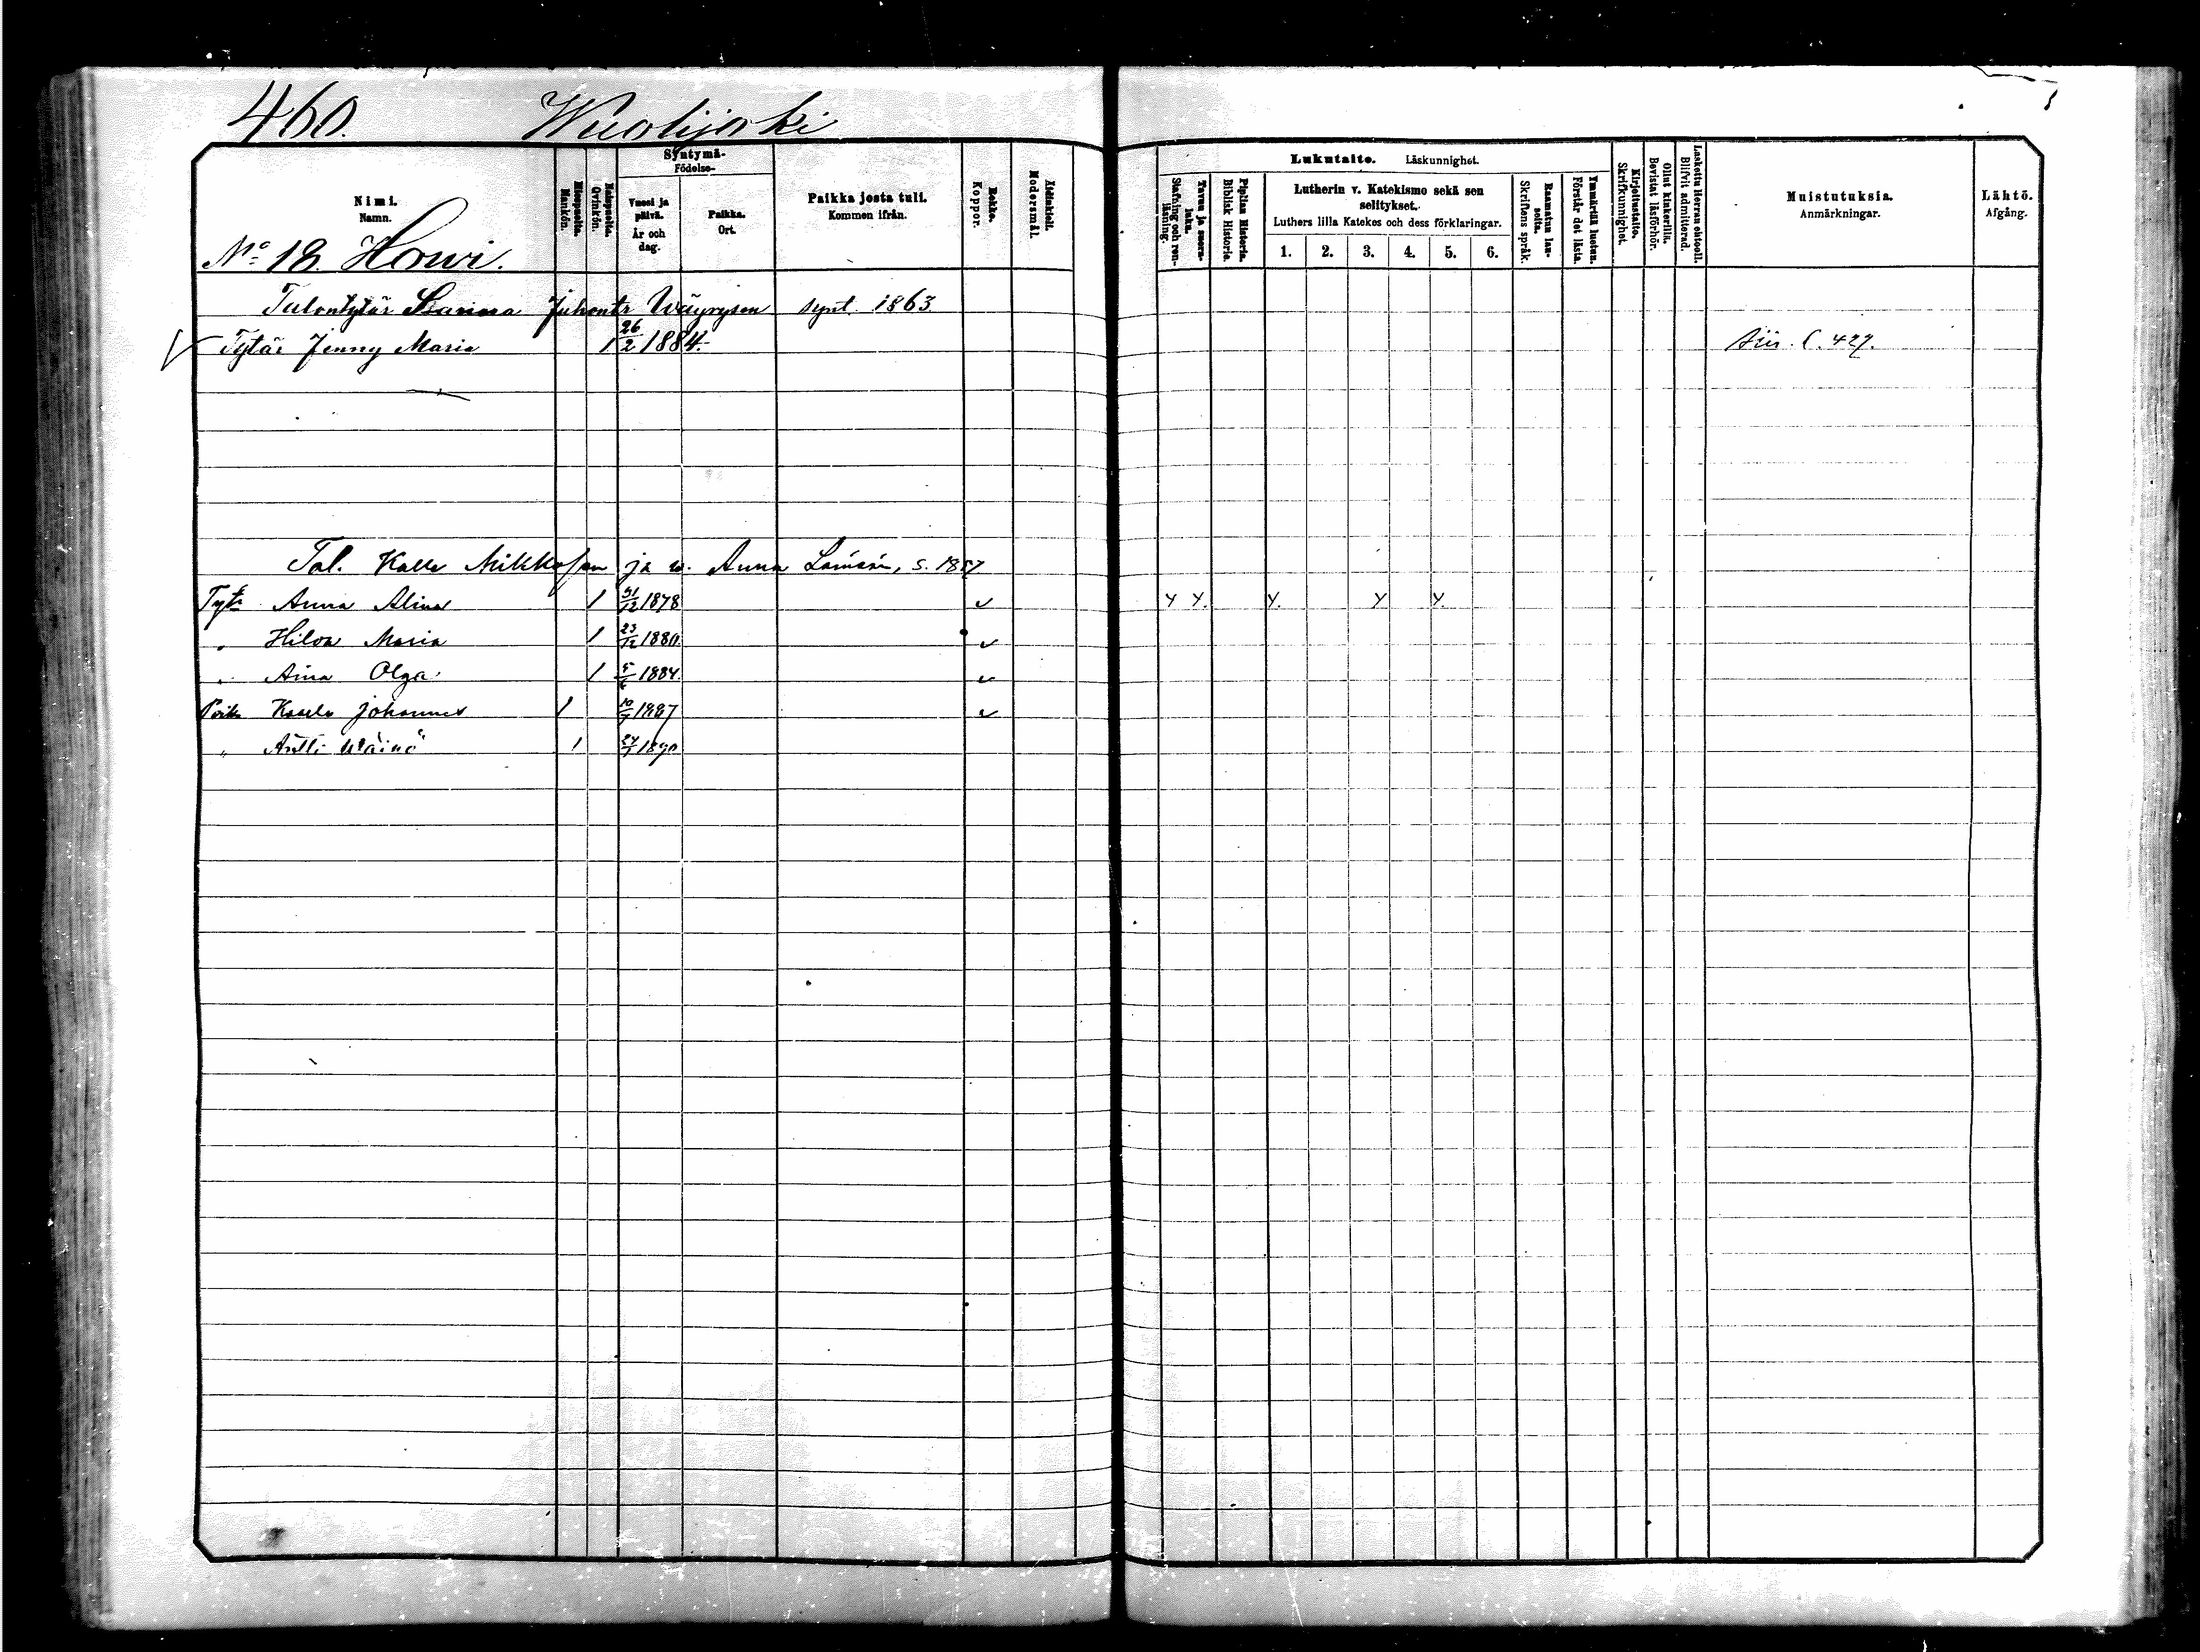 460. Wuolijoki
Syntymä-
Födelse-
Nimi.
Namn.
Miespuolta.
Mankön.
Naispuolta.
Qvinkön.
Vuosi ja päivä.
År och dag.
Paikka.
Ort.
Paikka josta tuli.
Kommen ifrån.
Rokko.
Koppor.
Äidinkieli.
Modersmål.
No 18. Howi.
Talontytär Sanna Juhontr Wäyrysen synt. 1863
Tytär Jenny Maria 1 26/2 1884.
Tal. Kalle Mikkosen ja w. Anna s. 1857
Tytr Anna Alina 1 31/12 1878
" Hilda Maria 1 23/12 1880.
" Aina Olga 1 5/6 1884.
Poika Kaarlo Johannes 1 10/7 1887
" Antti Wäinö 1 24/7 1890
Lukutaito. Läskunnighet.
Tavuu ja suora-luku.
Stafning och ren-läsning.
Piplian Historia.
Biblisk Historie.
Lutherin v. Katekismo sekä sen
selitykset.
Luthers lilla Katekes och dess förklaringar.
1. 2. 3. 4. 5. 6.
Raamatun lau-seita.
Skriftens språk.
Ymmärtää luetun.
Förstår det lästa.
Kirjoitustaito.
Skrifkunnighet.
Ollut kinkerillä.
Bevistat läsförhör.
Laskettu Herran ehtooll.
Blifvit admitterad.
Muistutuksia.
Anmärkningar.
Lähtö.
Afgång.
Siir. S. 427.
Y Y. Y. Y Y.